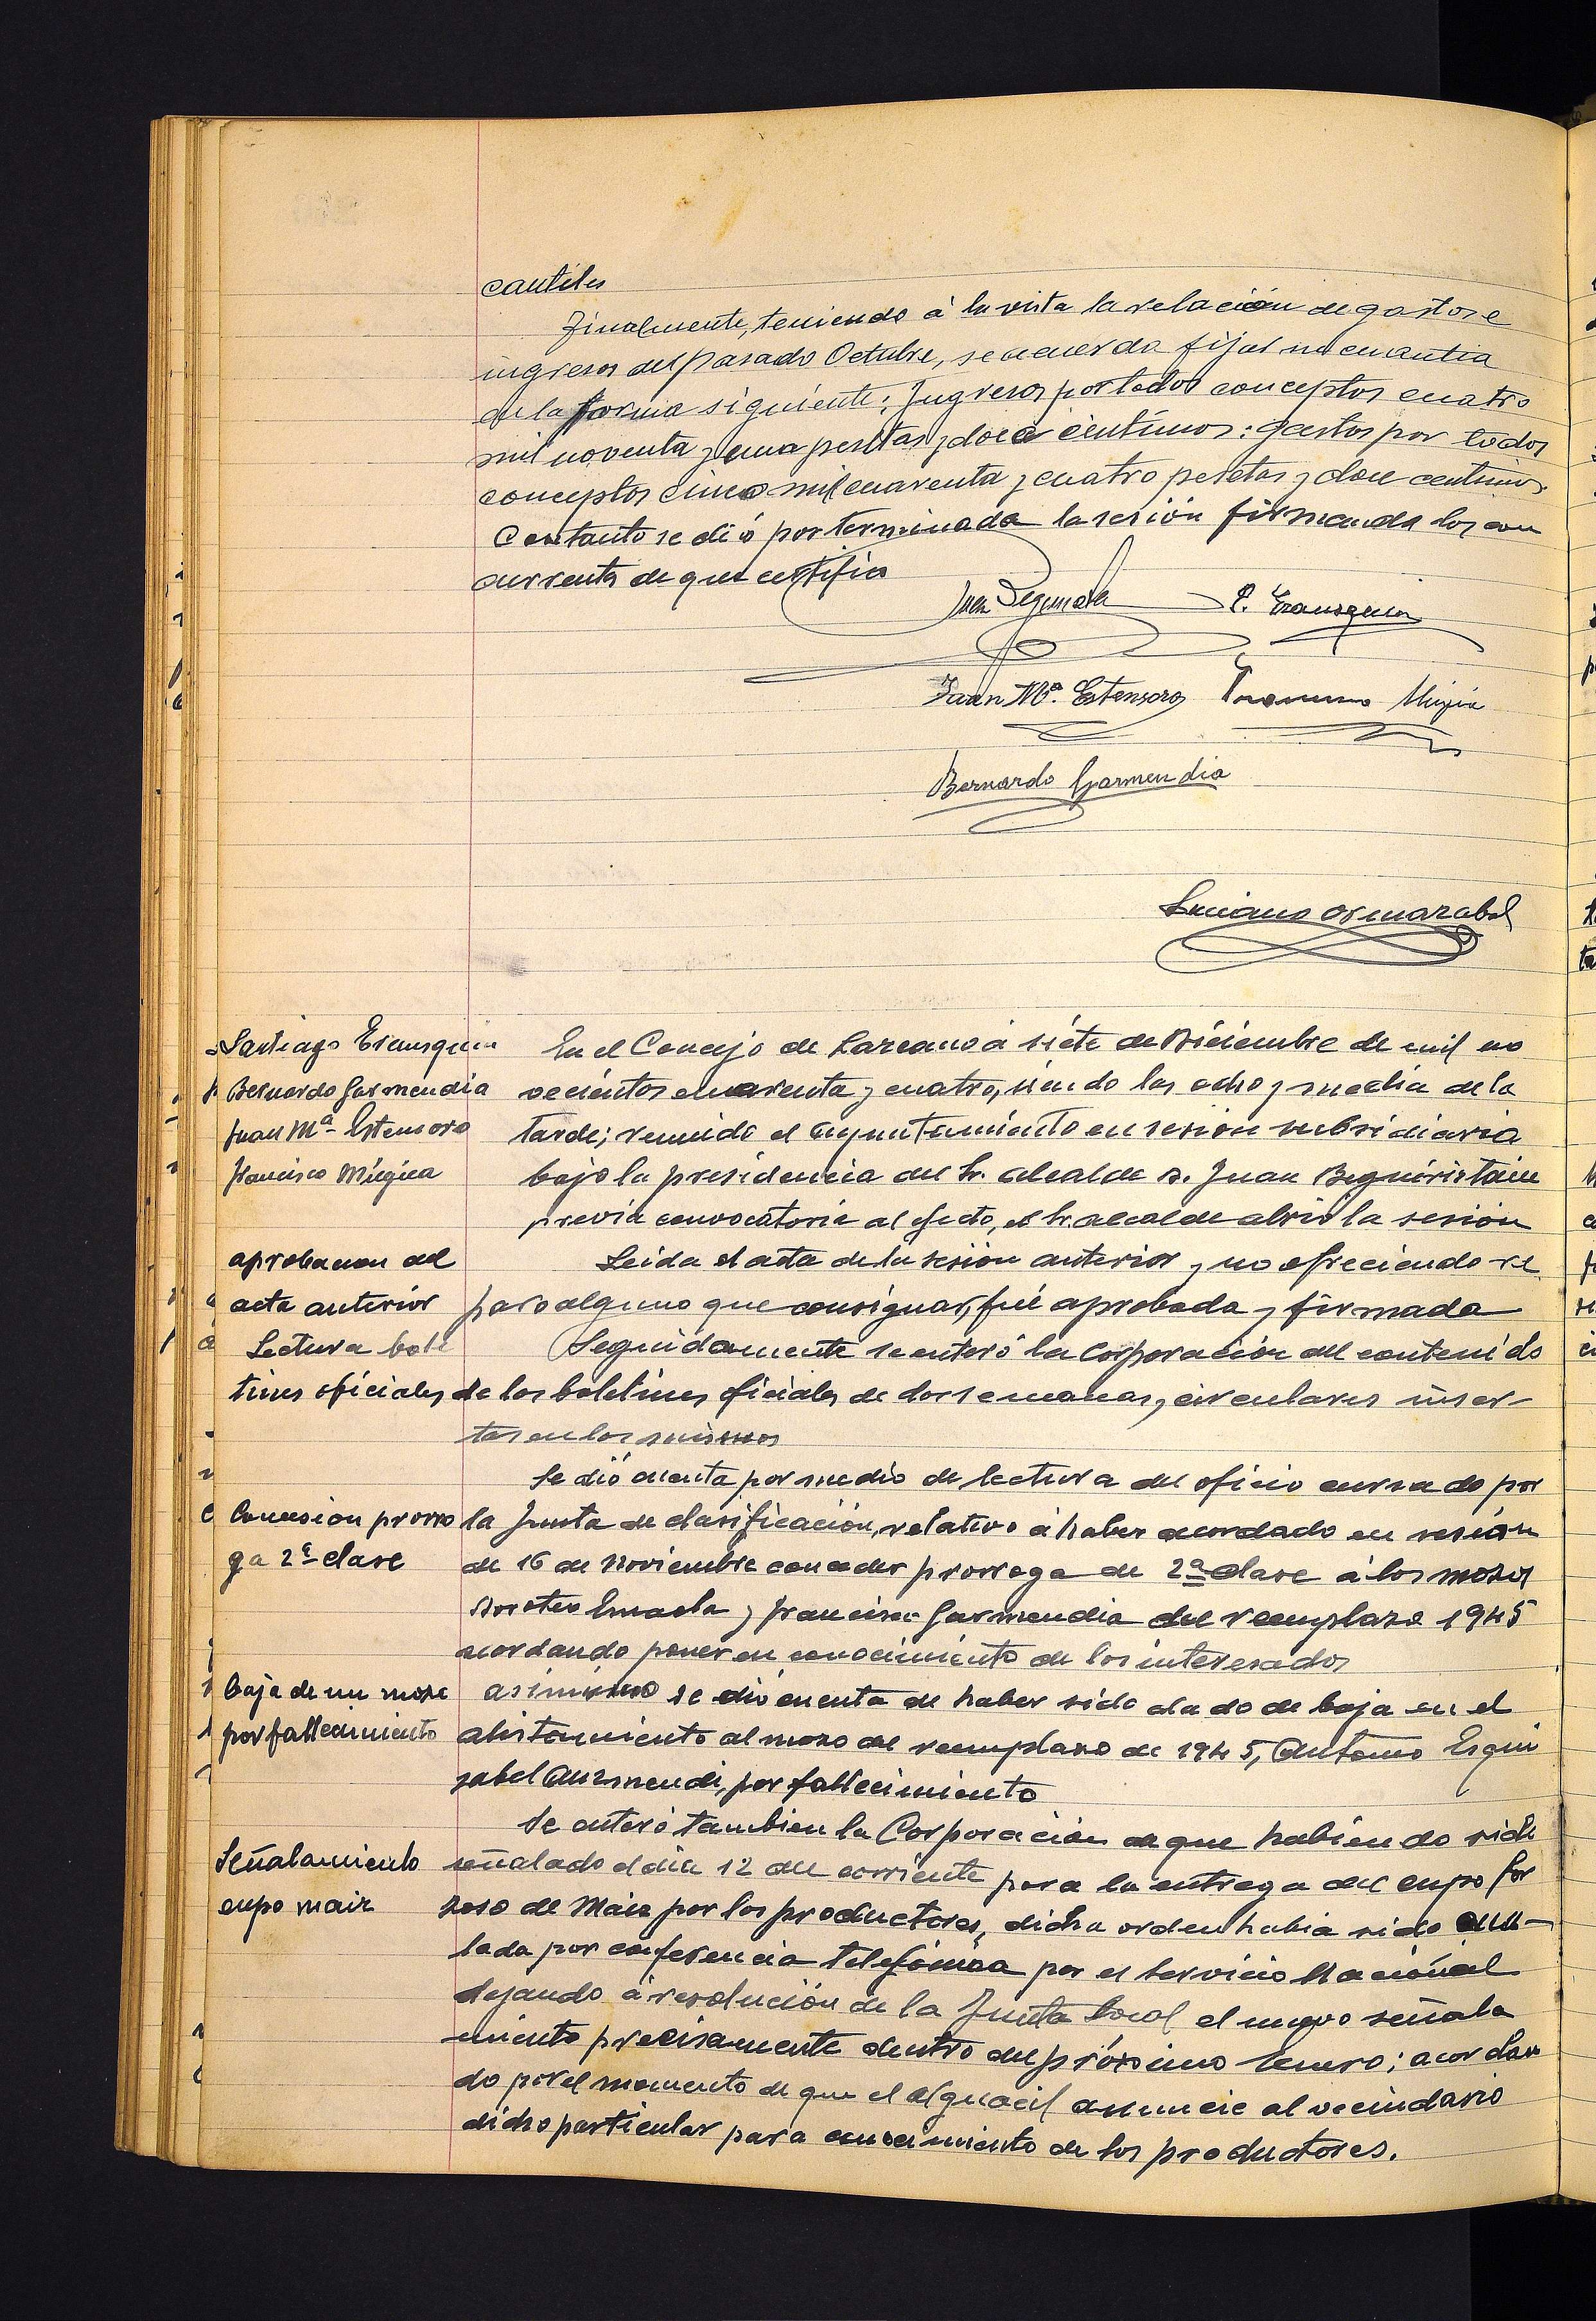 cantiles
Finalmente, teniendo á la vista la relación de gastos e
ingresos del pasado Octubre, se acuerda fijar su cuantia
en la forma siguiente; Ingresos por todos conceptos cuatro
mil noventa y una pesetas y doce céntimos: gastos por todos
conceptos cinco mil cuarenta y cuatro pesetas y doce centimos.
Con tanto se dió por terminada la sesión firmando los con
currentes de que certifico
Juan P. Erausquin
Juan Mª. Estensoro Mugica
Bernardo Garmendia
Luciano Ormazabal
Santiago Erausquin
Bernardo Garmendia
Juan Mª Estensoro
Francisco Múgica
En el Concejo de Lazcano á siete de Diciembre de mil no
vecientos cuarenta y cuatro, siendo las ocho y media de la
tarde; reunido el ayuntamiento en sesión subsidiaria
bajo la presidencia del Sr. alcalde D. Juan Beguiristain
previa convocatoria al efecto, el Sr. alcalde abrio la sesión
aprobacion del
acta anterior
Leida el acta de la sesión anterior y no ofreciendo re
paro alguno que consignar, fué aprobada y firmada
Lectura bole
tines oficiales
Seguidamente se enteró la Corporación del contenido
de los boletines oficiales de dos semanas y circulares inser-
tas en los mismos
Concesion prorro
ga 2ª clase
Se dió cuenta por medio de lectura del oficio cursado por
la Junta de clasificación, relativo á haber acordado en sesión
de 16 de Noviembre conceder prorroga de 2ª clase á los mozos
y Francisco Garmendia del reemplazo 1945
acordando poner en conocimiento de los interesados
Baja de un mozo
por fallecimiento
asimismo se dió cuenta de haber sido dado de baja en el
alistamiento al mozo del reemplazo de 1945, Antonio Esqui
sabel Auzmendi, por fallecimiento
Señalamiento
cupo maiz
Se enteró tambien la Corporación de que habiendo sido
señalado el dia 12 del corriente para la entrega del cupo for
zoso de Maiz por los productores, dicha orden habia sido anu-
lada por conferencia telefónica por el Servicio Nacional
dejando á resolución de la Junta Local el nuevo señala
miento precisamente dentro del próximo Enero; acordan
do por el momento de que el alguacil anuncie al vecindario
dicho particular para conocimiento de los productores.